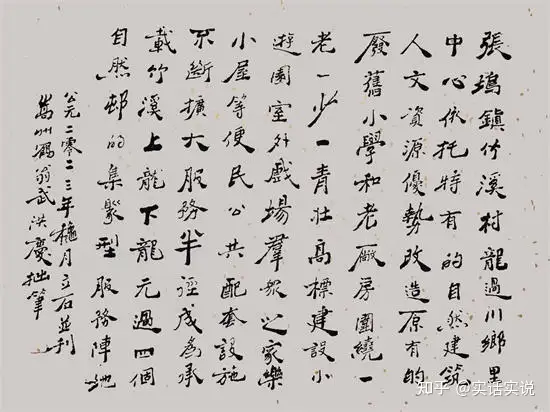 張塢鎮竹溪村龍過川鄉里
中心依托特有的自然建筑
人文資源優勢改造原有的
廢舊小學和老厰房圍繞一
老一少一青壯高標建設小
遊園室外戲場羣衆之家樂
小屋等便民公共配套設施
不斷擴大服務半徑成為承
載竹溪上龍下龍元過四個
自然邨的集聚型服務陣地
公元二零二三年穐月立石並刊
嵩州鶴翁武洪慶拙筆
知乎 @实话实说